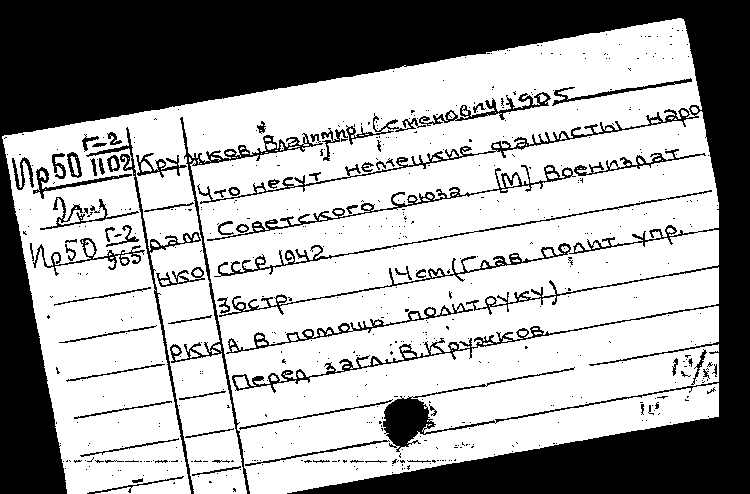 Ир50 Г-2/1102
2 экз
Ир50 Г-2/965
Кружков, Владимир Семенович, 1905
Что несут немецкие фашисты наро
дам Советского Союза. [М], Воениздат
НКО СССР, 1942.
36стр. 14см. (Глав. полит упр.
РККА. В помощь политруку).
Перед загл.: В. Кружков.